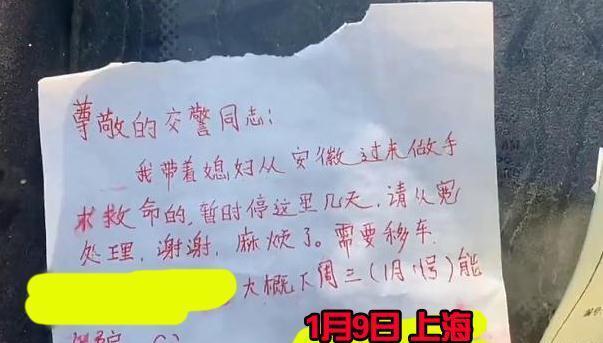 尊敬的交警同志：
我带着媳妇从安徽过来做手
求救命的，暂时停这里几天，请从宽
处理，谢谢，麻烦了。需要移车
大概下周三(1月 号)能
1月9日 上海